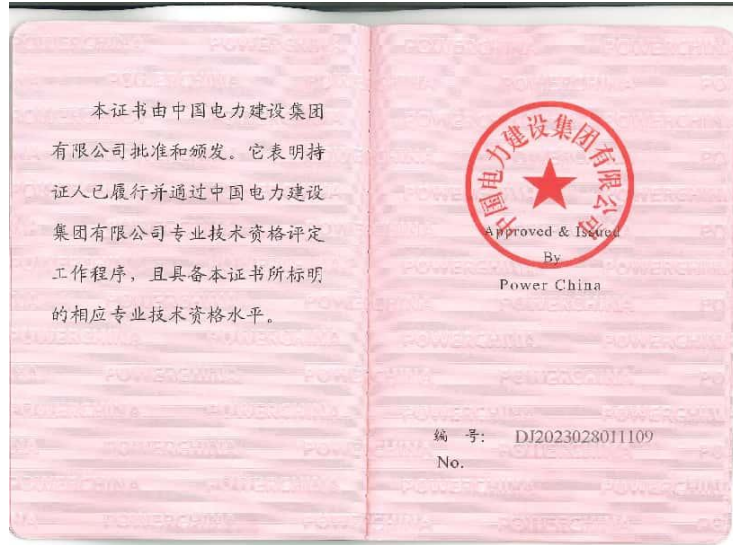 本证书由中国电力建设集团
有限公司批准和颁发。它表明持
证人已履行并通过中国电力建设
集团有限公司专业技术资格评定
工作程序，且具备本证书所标明
的相应专业技术资格水平。
中国电力建设集团有限公司
Approved & Issued
By
Power China
编 号: DJ2023028011109
No.
POWERCHINA